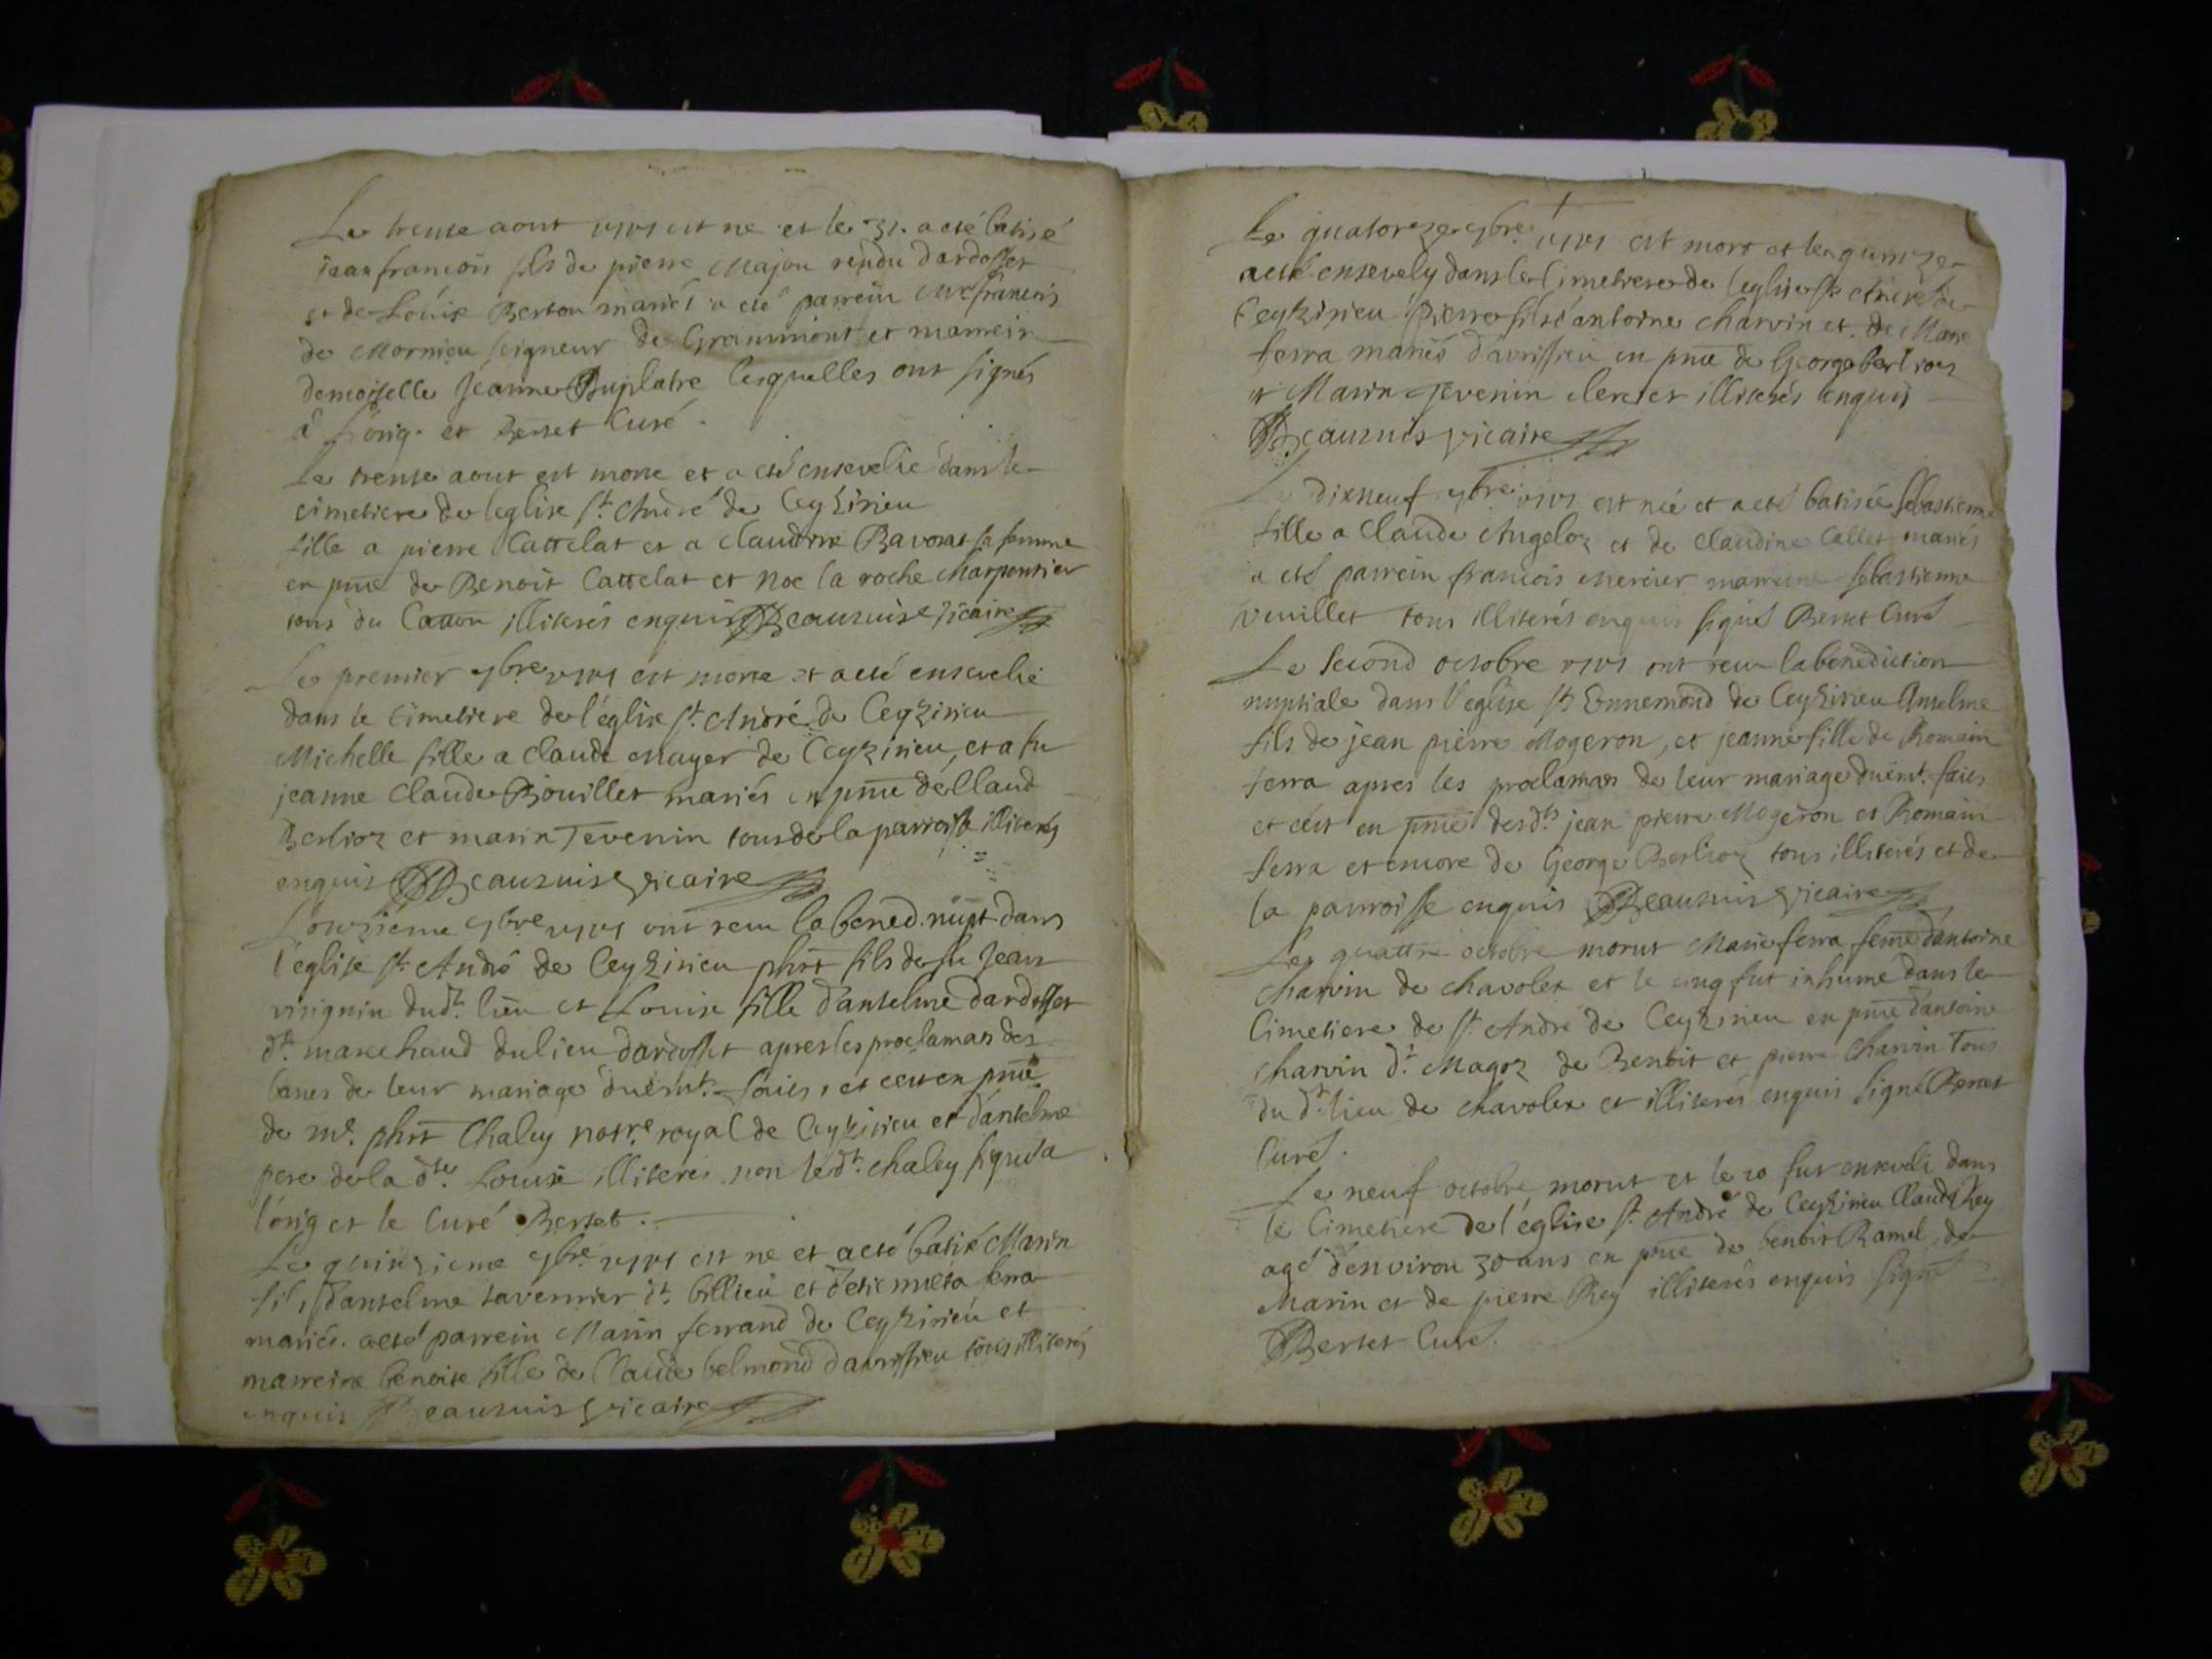 Le trente aout 1701 est ne et le 31. a eté batisé
jean francois fils de pierre Majou rendu dardosset
et de Louise Berton mariés a eté parrein mre francois
de Mornieu seigneur de Grammont et marrein
demoiselle Jeanne Duplatre lesquelles ont signés
à l'orig. et Berset Curé.
Le trente aout est morte et a eté ensevelie dans le
cimetiere de leglise st. André de Ceyzirieu
fille a pierre Cattelat et a claudine Bavorat sa femme
en pnce de Benoit Cattelat et Noe la roche Charpentier
tous du Catton illiterés enquis Beauruis vicaire
Le premier 7bre 1701 est morte et a eté ensevelie
dans le Cimetiere de l'église st. André de Ceyzirieu
Michelle fille a claude mayer de Ceyzirieu, et a fu
jeanne Claude Bouillet mariés en pnce de Claud
Berlioz et marin Tevenin tous de la parroisse illiterés
enquis Beauruis vicaire
L'onzieme 7bre 1701 ont receu la bened. nupt dans
l'église st. André de Ceyzirieu phrt fils de fu Jean
virignin dudt. lieu et Louise fille d'anselme dardosset
dt. marchand du lieu dardosset apres les proclamaons des
bancs de leur mariage duëmt. faits, et ceci en pnce
de me. phrt Chaley nottre royal de Ceyzirieu et d'anselme
pere de la dte. Louise illiteres non le dt. chaley signé a
l'orig et le Curé Berset.
Le quinzieme 7bre 1701 est ne et a eté batisé Marin
fils d'anselme tavernier dt. billieu et d'etiennette ferra
mariés. a eté parrein Marin ferrand de Ceyzirieu et
marreine benoite fille de Claude belmond d'avrissieu tous illiterés
enquis Beauruis vicaire
Le quatorze 7bre 1701 est mort et le quinze
a eté ensevely dans le Cimetiere de l'eglise st. André de
Ceyzirieu Pierre fils d'antoine Charvin et de Marie
ferra mariés d'avrissieu en pnce de George berlioz
et Marin Tevenin clerc et illiterés enquis
Beauruis vicaire
Le dixneuf 7bre 1701 est née et a eté batisée sebastienne
fille a Claude Angeloz et de Claudine Callet mariés
a eté parrein francois Mercier marreine sebastienne
Veuillet tous illiterés enquis signé Berset Curé
Le Second octobre 1701 ont receu la benediction
nuptiale dans l'eglise st Ennemond de Ceyzirieu Anselme
fils de jean pierre Mogeron, et jeanne fille de Romain
ferra apres les proclamaons de leur mariage duëmt. faits
et ceci en pnce desdts jean pierre Mogeron et Romain
ferra et encore de George Berlioz tous illiterés et de
la parroisse enquis Beauruis vicaire
Le quattre octobre morut Marie ferra feme d'antoine
Charvin de chavolex et le cinq fut inhume dans le
Cimetiere de st. André de Ceyzirieu en pnce d'antoine
charvin dt. Magoz de Benoit et pierre Charvin Tous
du dt. lieu de chavolex et illiterés enquis signé Berset
Curé.
Le neuf octobre morut et le 10 fut enseveli dans
le Cimetiere de l'église st. André de Ceyzirieu Claude Rey
agé d'environ 30 ans en pnce de benoit Ramel, de
Marin et de pierre Rey illiterés enquis signé
Berset Curé.